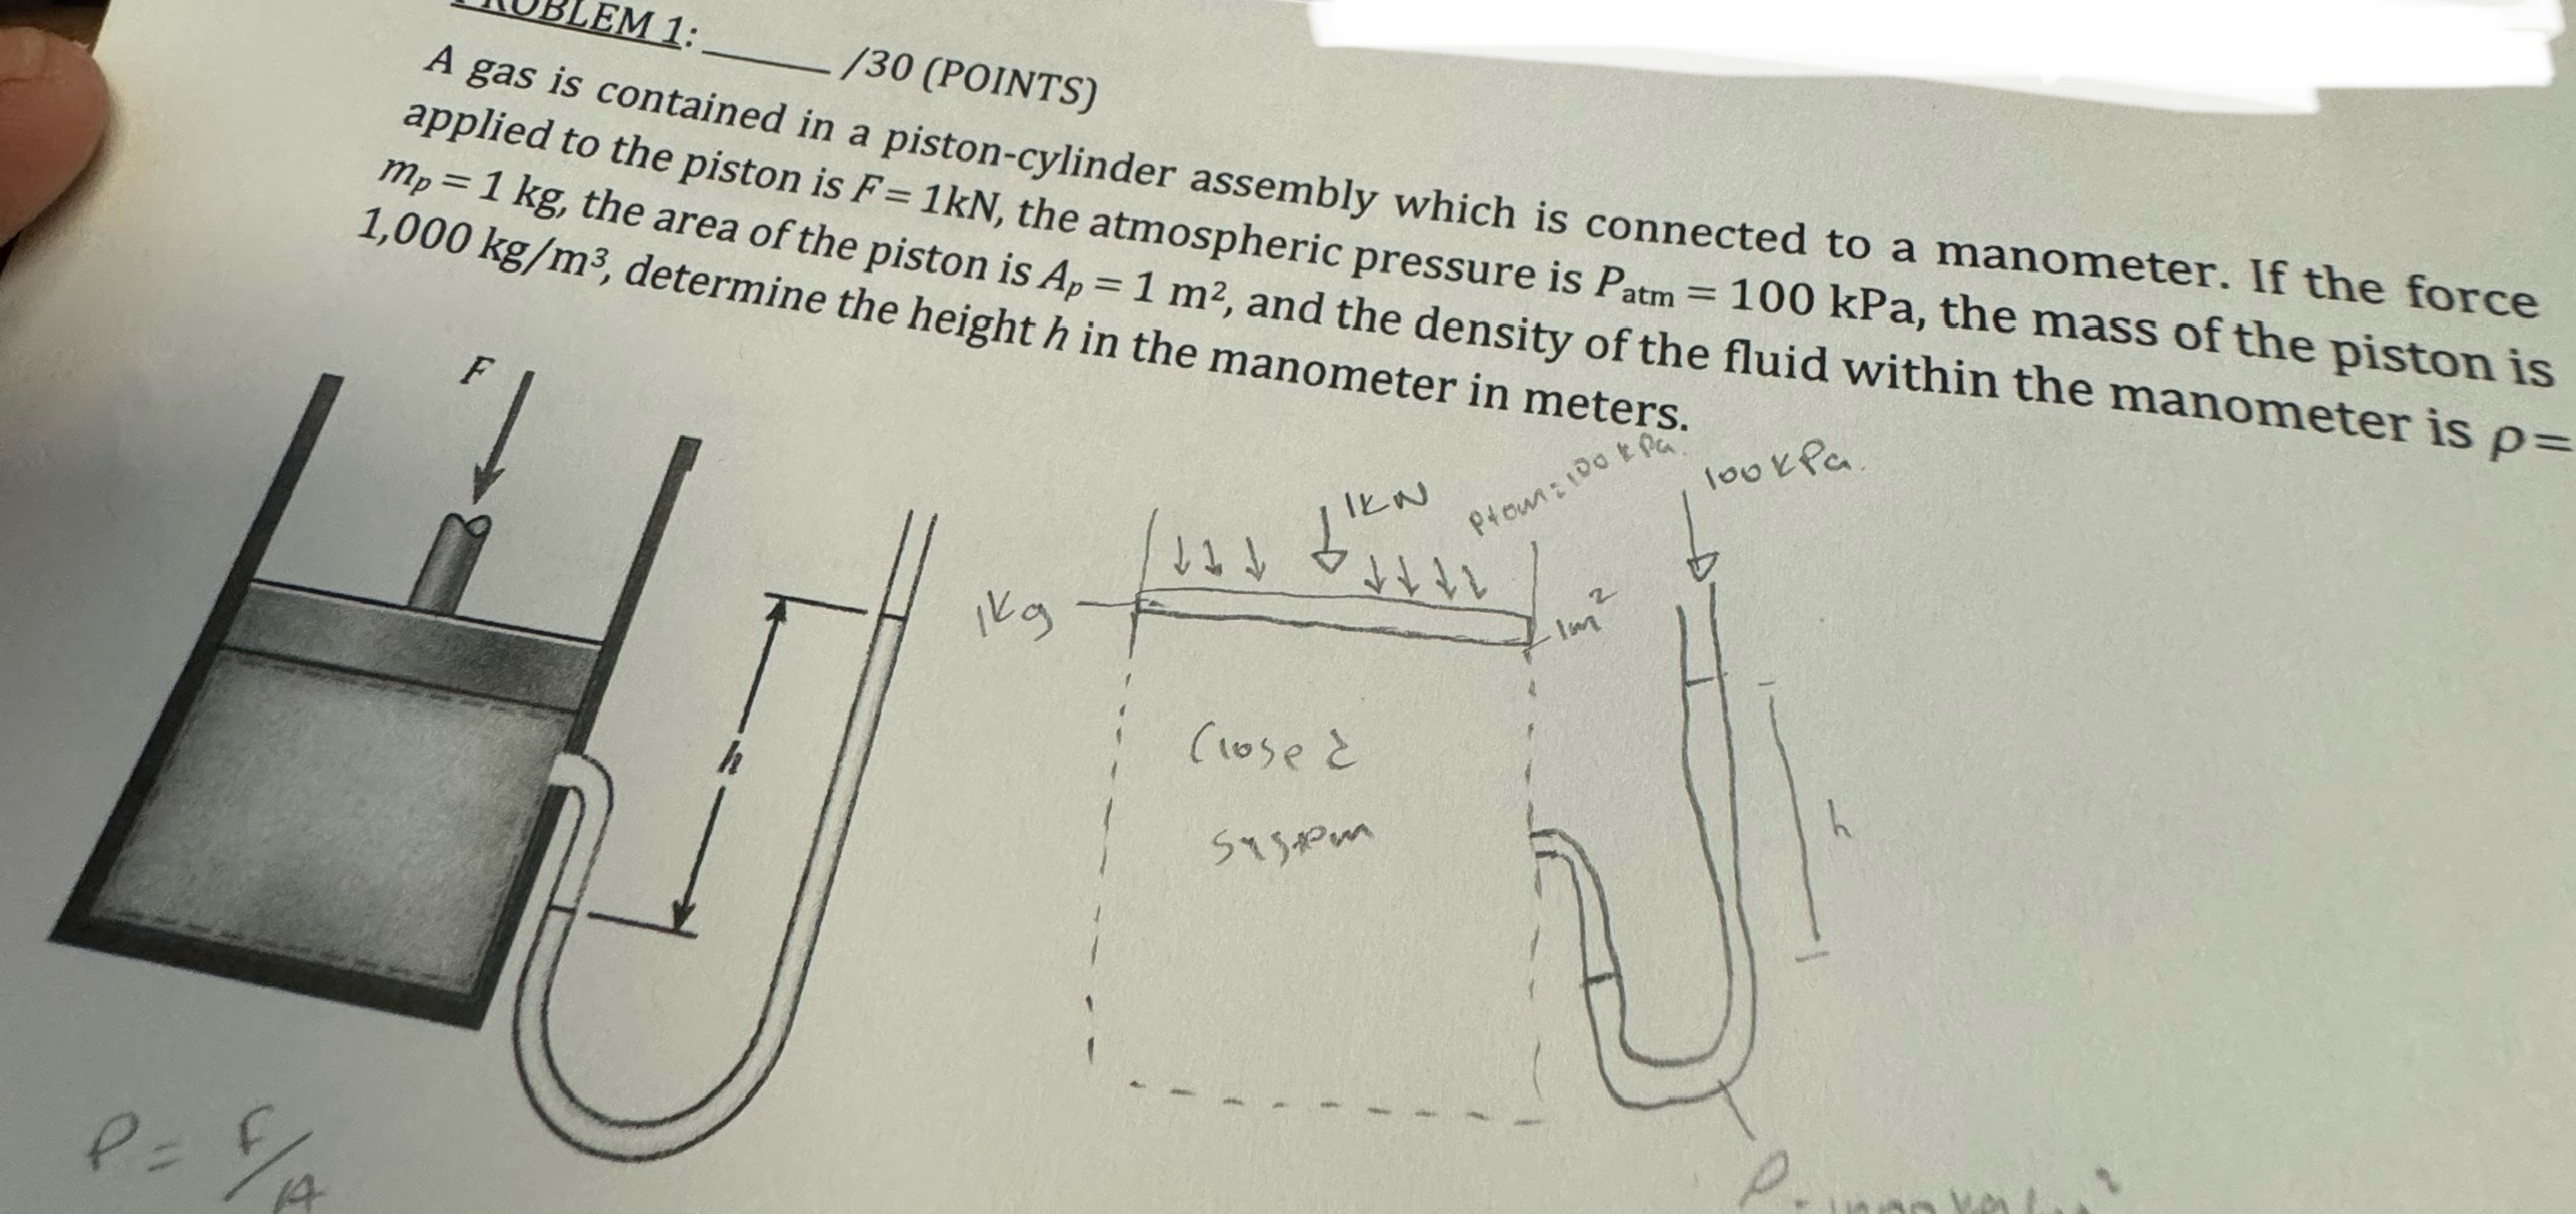 PROBLEM 1: ______ /30 (POINTS)
A gas is contained in a piston-cylinder assembly which is connected to a manometer. If the force
applied to the piston is F = 1kN, the atmospheric pressure is Patm = 100 kPa, the mass of the piston is
mp = 1 kg, the area of the piston is Ap = 1 m², and the density of the fluid within the manometer is ρ=
1,000 kg/m³, determine the height h in the manometer in meters.
F
h
1KN
Patm=100 kPa.
100 kPa.
1Kg
1m²
Closed
system
h
P = F/A